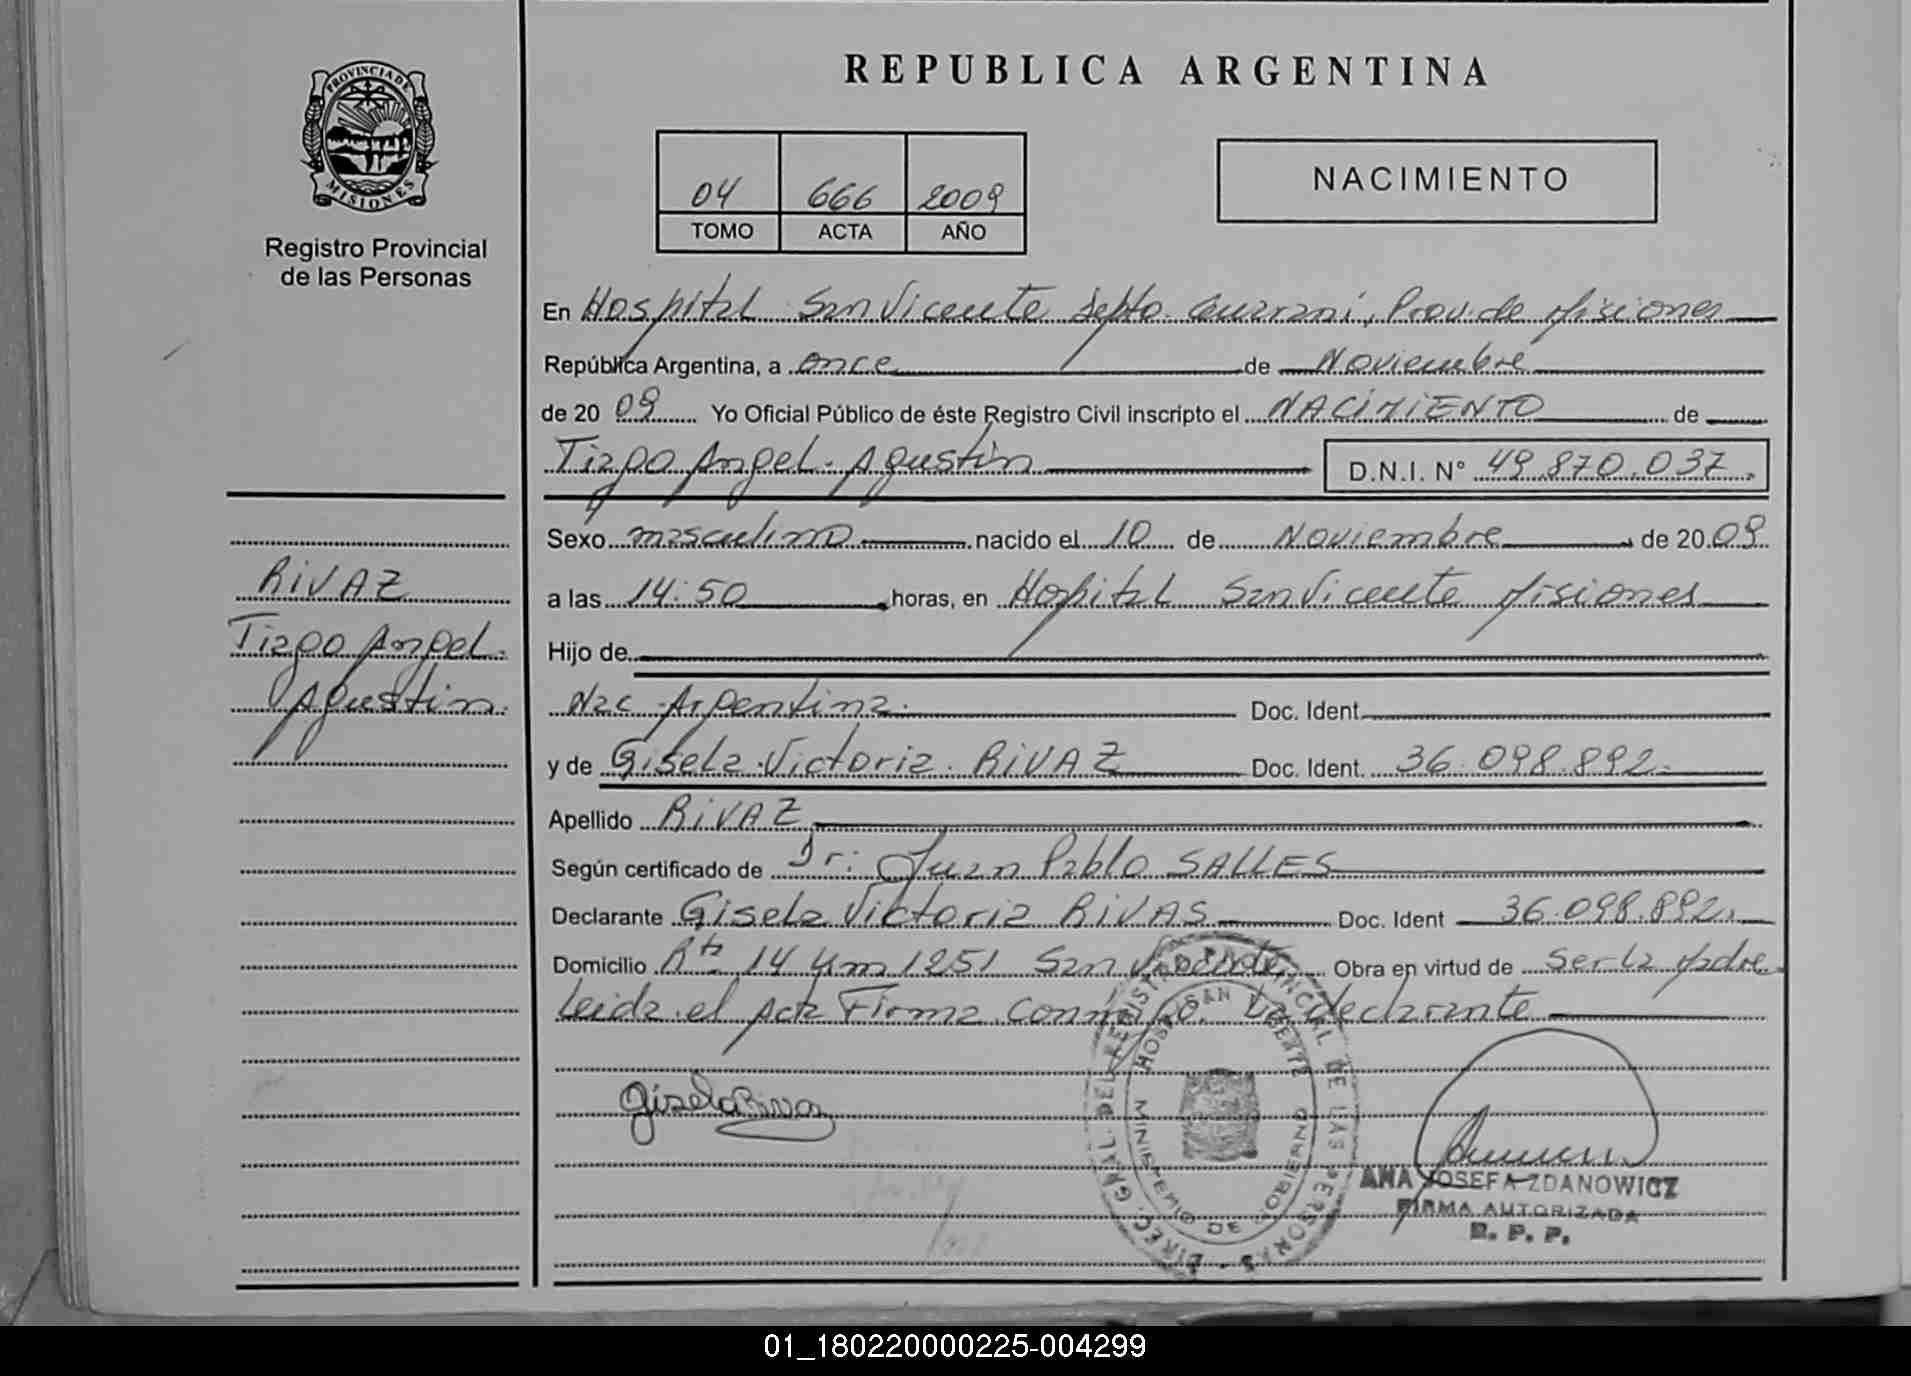 PROVINCIA DE
MISIONES
Registro Provincial
de las Personas
RiVAZ
Tiago Angel.
Agustin.
REPUBLICA ARGENTINA
04 666 2009
TOMO ACTA AÑO
NACIMIENTO
En Hospital San Vicente Depto. Guarani, Prov. de Misiones
República Argentina, a once de Noviembre
de 20 09 Yo Oficial Público de éste Registro Civil inscripto el NACIMIENTO de
Tiago Angel. Agustin D.N.I. N° 49.870.037.
Sexo masculino nacido el 10 de Noviembre de 20 09
a las 14:50 horas, en Hospital San Vicente Misiones
Hijo de
Nac. Argentina. Doc. Ident.
y de Gisela Victoria RiVAZ Doc. Ident. 36.098.892.
Apellido RiVAZ
Según certificado de Dr: Juan Pablo SALLES
Declarante Gisela Victoria RiVAS Doc. Ident 36.098.892.
Domicilio Rta 14 Km 1251 San Vicente Obra en virtud de ser la Madre
Leida el Acta Firma conmigo. La declarante
Gisela Rivas
DIREC. GRAL. DEL REGISTRO PROVINCIAL DE LAS PERSONAS
HOSP. SAN VICENTE
MINISTERIO DE GOBIERNO
ANA JOSEFA ZDANOWICZ
FIRMA AUTORIZADA
R. P. P.
01_180220000225-004299